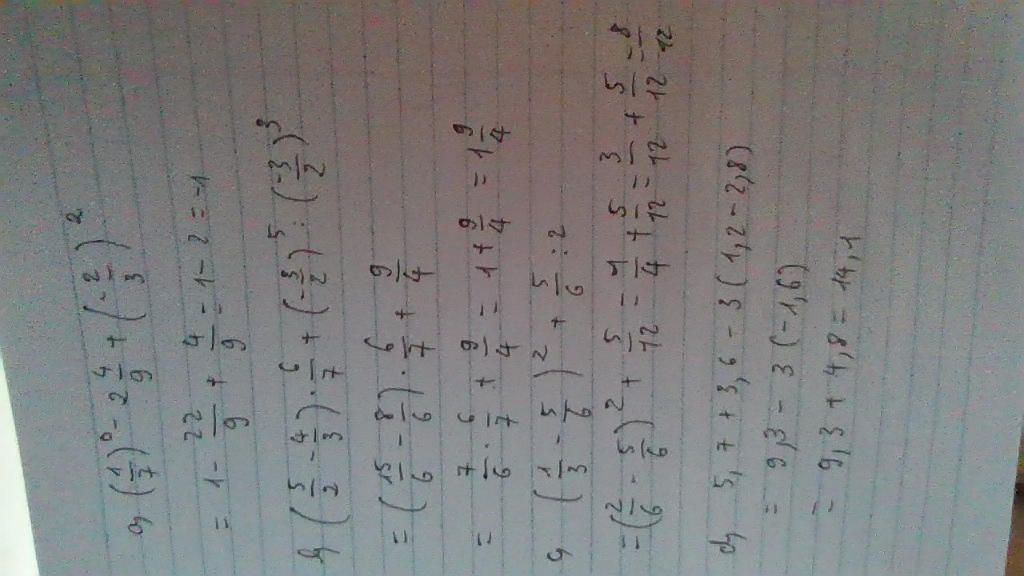 a, (1/7)^0 - 2 4/9 + (-2/3)^2
= 1 - 22/9 + 4/9 = 1 - 2 = -1
b, (5/2 - 4/3) . 6/7 + (-3/2)^5 : (-3/2)^3
= (15/6 - 8/6) . 6/7 + 9/4
= 7/6 . 6/7 + 9/4 = 1 + 9/4 = 1 9/4
c, (1/3 - 5/6)^2 + 5/6 : 2
= (2/6 - 5/6)^2 + 5/12 = 1/4 + 5/12 = 3/12 + 5/12 = 8/12
d, 5,7 + 3,6 - 3 (1,2 - 2,8)
= 9,3 - 3 (-1,6)
= 9,3 + 4,8 = 14,1